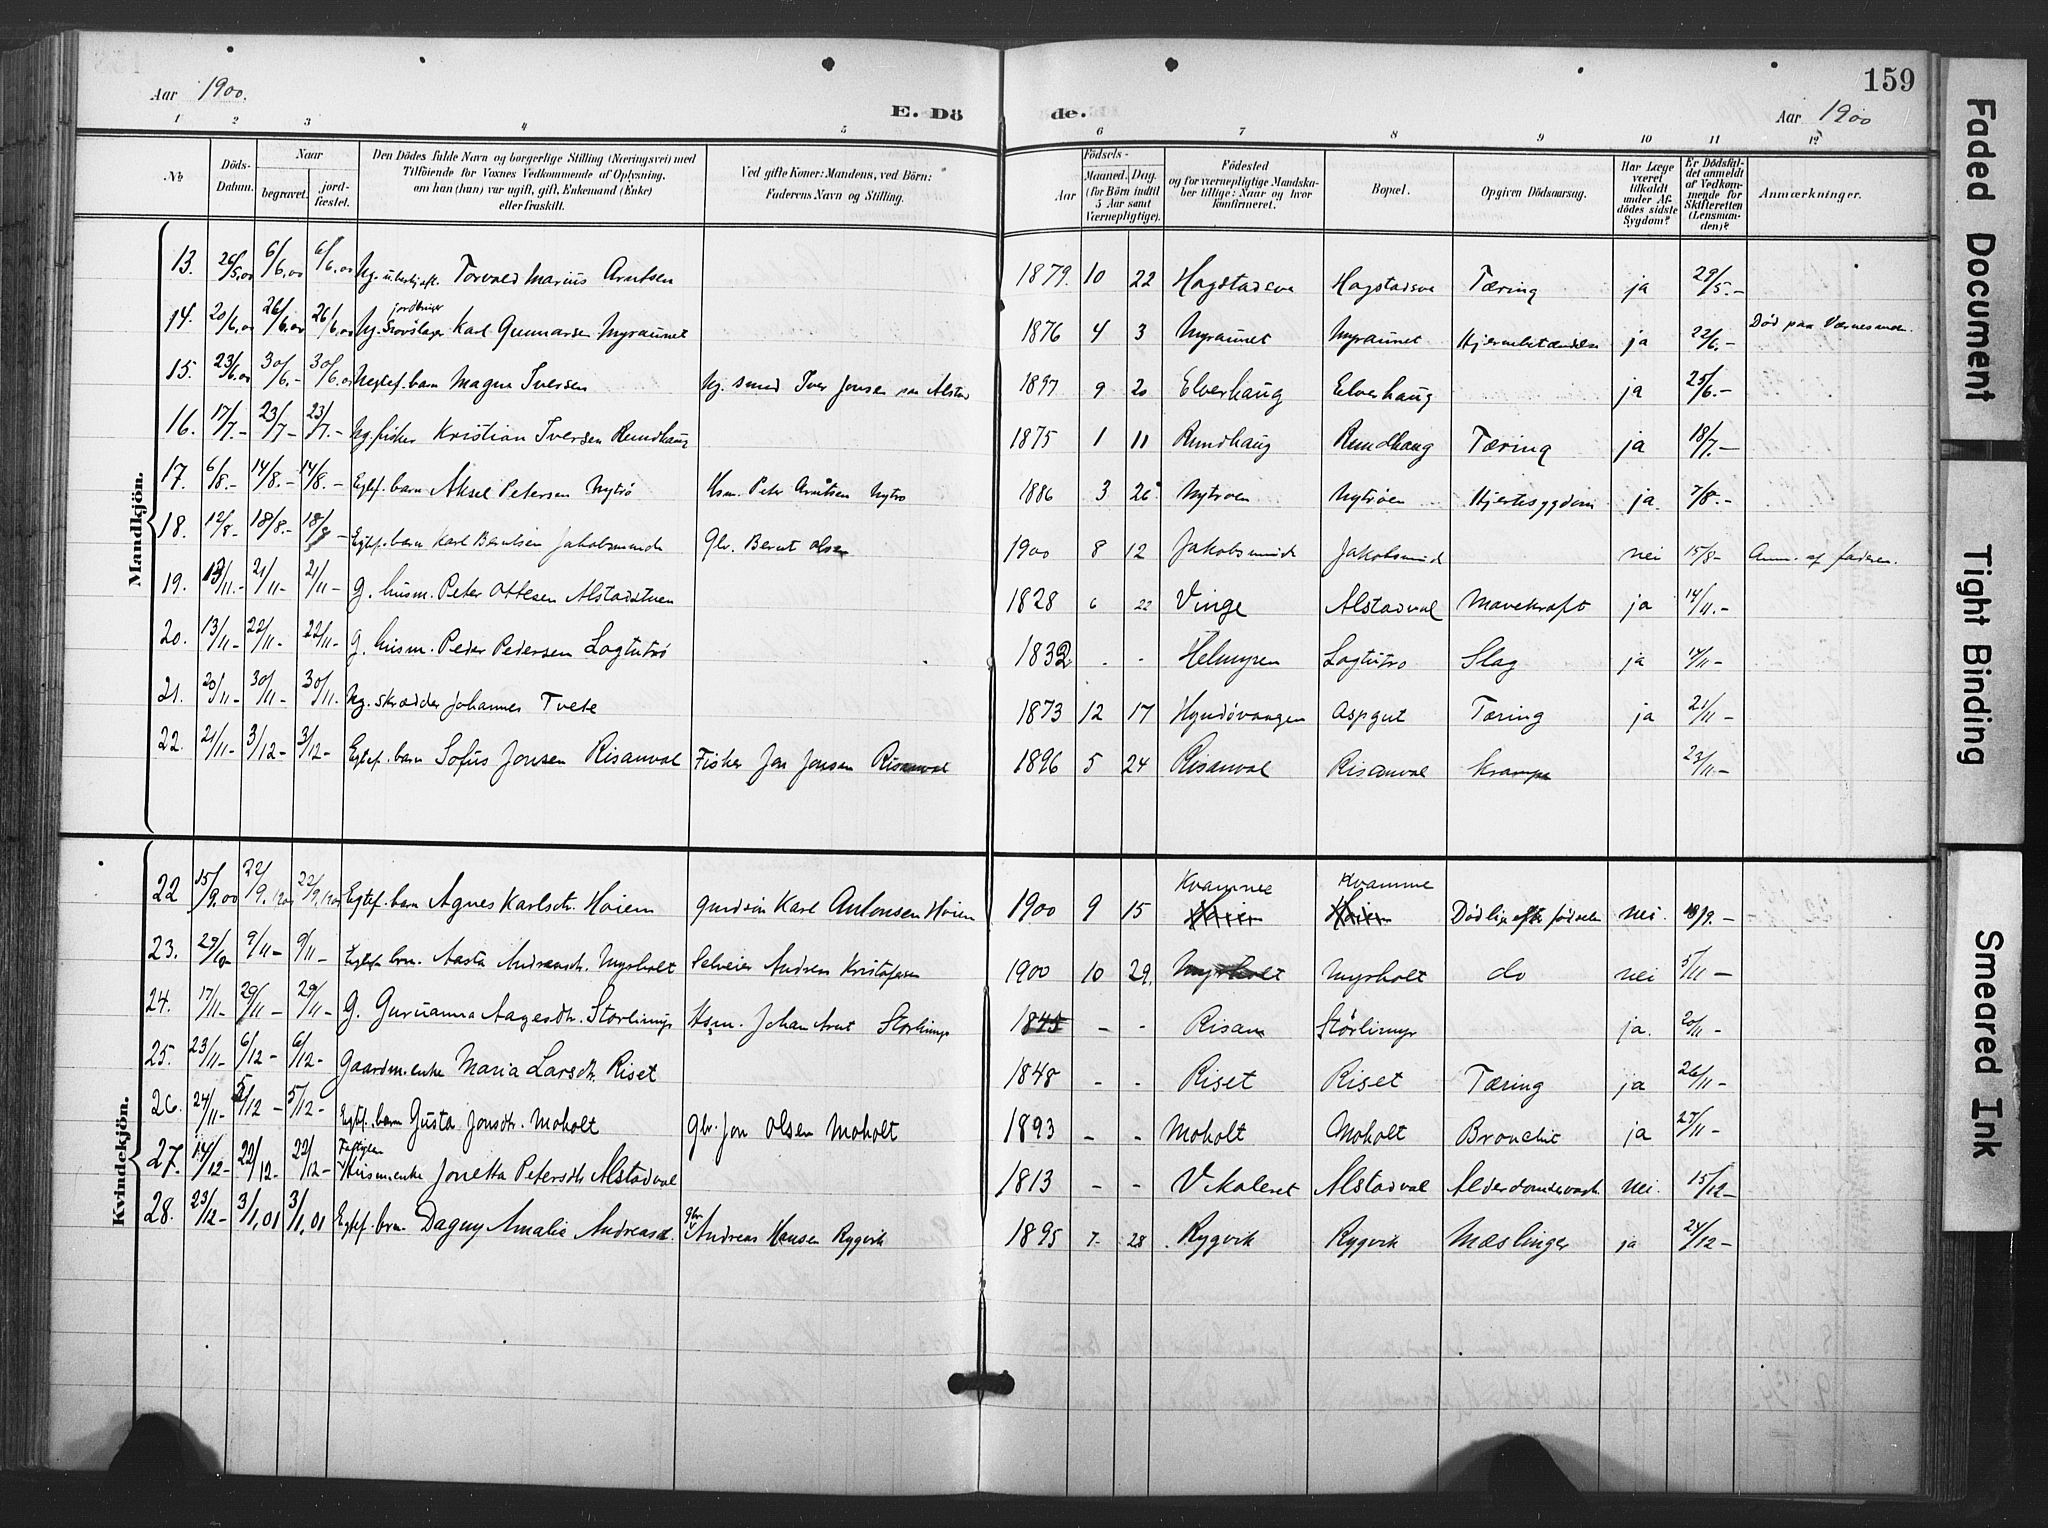 Aar 1900.
E. Dö de.
159
Aar 1900
1 2 3 4 5 6 7 8 9 10 11 12
No
Döds-Datum.
Naar
begravet.
jord-fæstet.
Den Dödes fulde Navn og borgerlige Stilling (Næringsvei) med
Tilföiende for Voxnes Vedkommende af Oplysning,
om han (hun) var ugift, gift, Enkemand (Enke)
eller fraskilt.
Ved gifte Koner: Mandens, ved Börn:
Faderens Navn og Stilling.
Födsels-
Aar
Maaned. Dag.
(for Börn indtil
5 Aar samt
Værnepligtige).
Födested
og for værnepligtige Mandska-
ber tillige: Naar og hvor
konfirmeret.
Bopæl.
Opgiven Dödsaarsag.
Har Læge
været
tilkaldt
under Af-
dödes sidste
Sygdom?
Er Dödsfal-
det anmeldt
af Vedkom-
mende for
Skifteretten
(Lensman-
den)?
Anmærkninger.
Mandkjön.
13. 26/5.00 6/6.00 6/6.00 Ug. Torvald Marius Arntsen 1879. 10 22 Hagstadsve Hagstadsve Tæring ja 29/5.-
14. 20/6.00 26/6.00 26/6.00 Ug. Karl Gunnarsen Myraunet 1876 4 3 Myraunet Myraunet Hjernebetændelse ja 22/6.- Död paa Værnesmoen.
15. 23/6.00 30/6.- 30/6.00 Uegtef. barn Magne Iversen Ug. smed Iver Jonsen paa Alstad 1897 9 20 Elverhaug Elverhaug ja 25/6.-
16. 17/7.- 23/7- 23/7.- Ug. fisker Kristian Iversen Rundhaug 1875 1 11 Rundhaug Rundhaug Tæring ja 18/7.-
17. 6/8.- 14/8.- 14/8.- Egtef. barn Aksel Petersen Nytrö Hsm. Peter Arntsen Nytrö 1886 3 26 Nytröen Nytröen Hjertesygdom ja. 7/8.-
18. 12/8- 18/8.- 18/8- Egtef. barn Karl Berntsen Jakobsminde Gbr. Bernt Olsen 1900 8 12 Jakobsminde Jakobsmind nei 15/8- Anm. af faderen.
19. 13/11.- 21/11- 21/11- G. husm. Peter Ottesen Alstadstuen 1828 6 22 Vinge Alstadval Mavekræft ja 14/11.-
20. 13/11- 22/11- 22/11- G. husm. Peder Pedersen Lagtutrö 1832 - - Helmyren Lagtutrö Slag ja 14/11-
21. 20/11- 30/11- 30/11- Ug. skrædder Johannes Tvete 1873 12 17 Hyndövangen Aspgut Tæring ja 21/11-
22. 21/11- 3/12- 3/12- Egtef. barn Sofus Jonsen Risanval Fisker Jon Jonsen Risanval 1896 5 24 Risanval Risanval Krampe 23/11.-
Kvindekjön.
22 15/9.00 22/9.1900 22/9.1900 Egtef. barn Agnes Karlsdtr. Höiem Karl Antonsen Höiem 1900 9 15 Kvamme Kvamme Död lige efter fødselen nei. 18/9.-
23. 29/10- 9/11- 9/11- Egtef. brn. Aasta Andreasdtr. Myrholt Selveier Andreas Kristofersen 1900 10 29. Myrholt Myrholt do nei 5/11-
24. 17/11- 29/11- 29/11- G. Guruanna Aagesdtr. Störlimyr Hsm. Johan Arnt Störlimyr 1845 - - Risan Störlimyr ja. 20/11-
25. 23/11- 6/12- 6/12- Gaardm.enke Maria Larsdtr. Riset 1848 - - Riset Riset Tæring ja 26/11-
26. 24/11- 5/12- 5/12- Egtef. barn Gusta Jonsdtr. Moholt Gbr. Jon Olsen Moholt 1893 - - Moholt Moholt Bronchit ja 27/11-
27. 14/12- 22/12- 22/12- Fattiglem Husm.enke Jonetta Petersdtr Alstadval 1813 - - Vikaleret Alstadval Alderdomssvagh. nei. 15/12-
28. 23/12- 3/1.01 3/1.01 Egtef. brn. Dagny Amalie Andreasd. gbr. Andreas Hansen Rygvik 1895 7- 28 Rygvik Rygvik Mæslinger ja 24/12-
Faded Document
Tight Binding
Smeared Ink